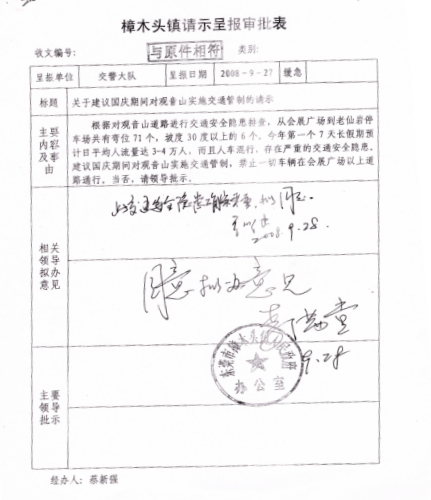 樟木头镇请示呈报审批表
收文编号： 与原件相符 类别：
呈报单位 交警大队 呈报日期 2008-9-27 缓急
标题 关于建议国庆期间对观音山实施交通管制的请示
主要内容及事由
根据对观音山道路进行交通安全隐患排查，从会展广场到老仙岩停
车场共有弯位71个，坡度30度以上的6个，今年第一个7天长假期预
计日平均人流量达3-4万人，而且人车混行，存在严重的交通安全隐患。
建议国庆期间对观音山实施交通管制，禁止一切车辆在会展广场以上道
路通行。当否，请领导批示。
相关领导拟办意见
2008.9.28.
同意拟办意见
9.28
东莞市樟木头镇人民政府
办公室
主要领导批示
经办人：蔡新强